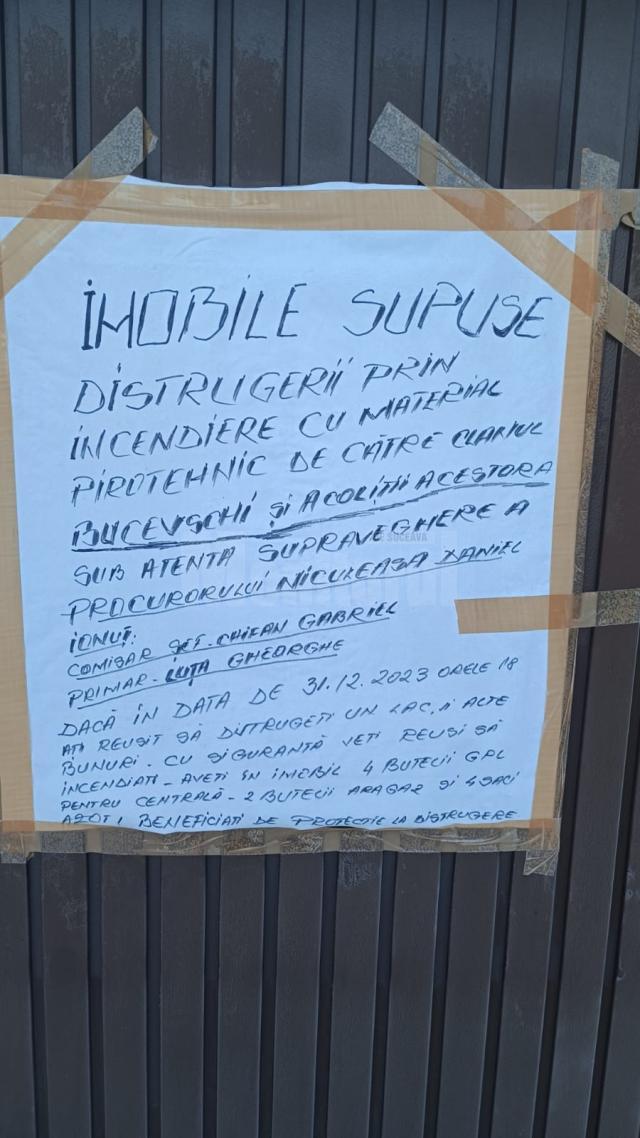 İMOBILE SUPUSE
DİSTRUGERİİ PRIN
İNCENDIERE CU MATERIAL
PIROTEHNIC DE CĂTRE CLANUL
BUCEVSCHI ȘI ACOLIȚII ACESTORA
SUB ATENTA SUPRAVEGHERE A
PROCURORULUI NICULEASA DANIEL
IONUȚ:
COMISAR ȘEF. CHIFAN GABRIEL
PRIMAR - LUȚA GHEORGHE
DACĂ ÎN DATA DE 31.12.2023 ORELE 18
AȚI REUSIT SĂ DISTRUGEȚI UN LAC, SI ALTE
BUNURI - CU SIGURANȚĂ VEȚI REUSI SĂ
INCENDIAȚI - AVEȚI ÎN IMOBIL 4 BUTELII GPL
PENTRU CENTRALĂ - 2 BUTELII ARAGAZ SI 4 SACI
AZOT, BENEFICIAȚI DE PROTECȚIE LA DISTRUGERE
DE SUCEAVA